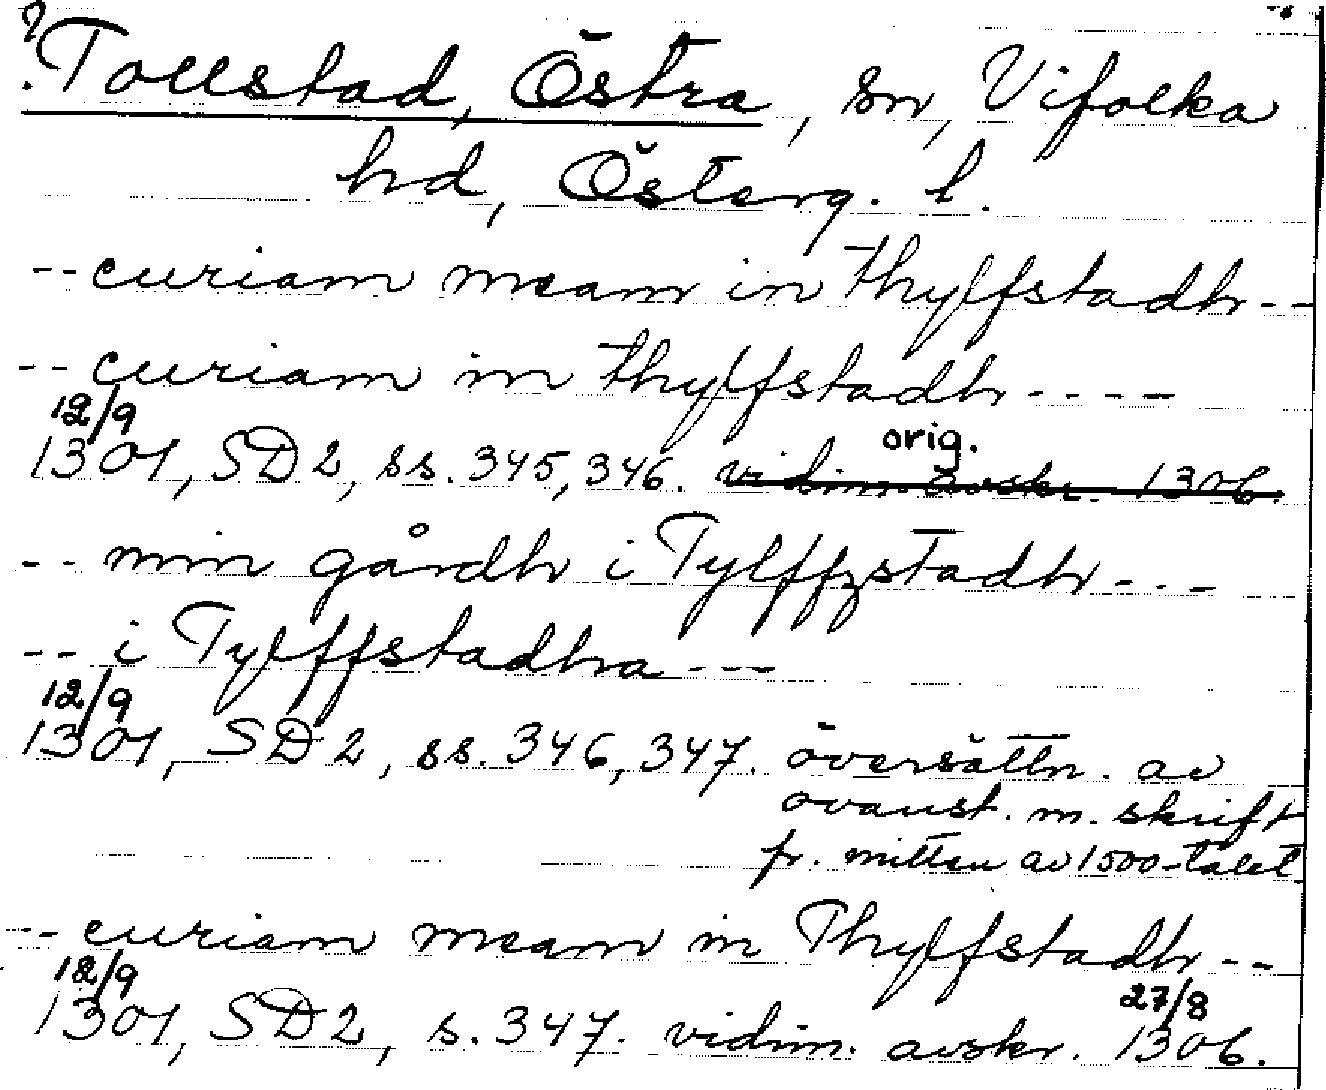 ? Tollstad, Östra, sn, Vifolka
hd, Österg. l.
-- curiam meam in thylfstadh --
-- curiam in thylfstadh ----
12/9 orig.
1301, SD 2, ss. 345, 346. vidim. avskr. 1306.
-- min gårdh i Tylffzstadh ---
-- i Tylffstadha ---
12/9
1301, SD 2, ss. 346, 347. översättn. av
ovanst. m. skrift
fr. mitten av 1500-talet.
-- curiam meam in Thylfstadh --
12/9 27/8
1301, SD 2, s. 347. vidim. avskr. 1306.